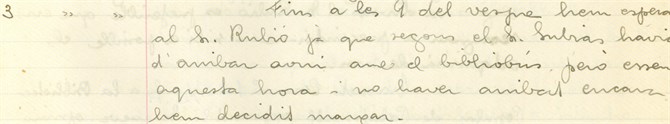 3 " " Fins a les 9 del vespre hem espera
al S. Rubió ja que segons el S. Subias havia
d'arribar avui amb el bibliobús, però essen
aquesta hora i no haver arribat encara
hem decidit marxar.